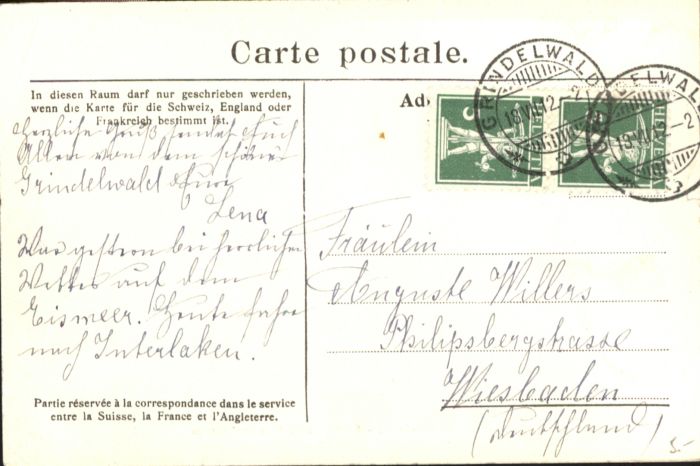 Carte postale.
In diesen Raum darf nur geschrieben werden,
wenn die Karte für die Schweiz, England oder
Frankreich bestimmt ist.
Herzliche Grüße sendet Euch
Allen von dem schönen
Grindelwald Eure
Lena
War gestern bei herrlichem
Wetter auf dem
Eismeer. Heute fahre
nach Interlaken.
Partie réservée à la correspondance dans le service
entre la Suisse, la France et l'Angleterre.
GRINDELWALD
HELVETIA
5
Fräulein
Auguste Willers
Philippsbergstrasse
Wiesbaden
(Deutschland)
5.-